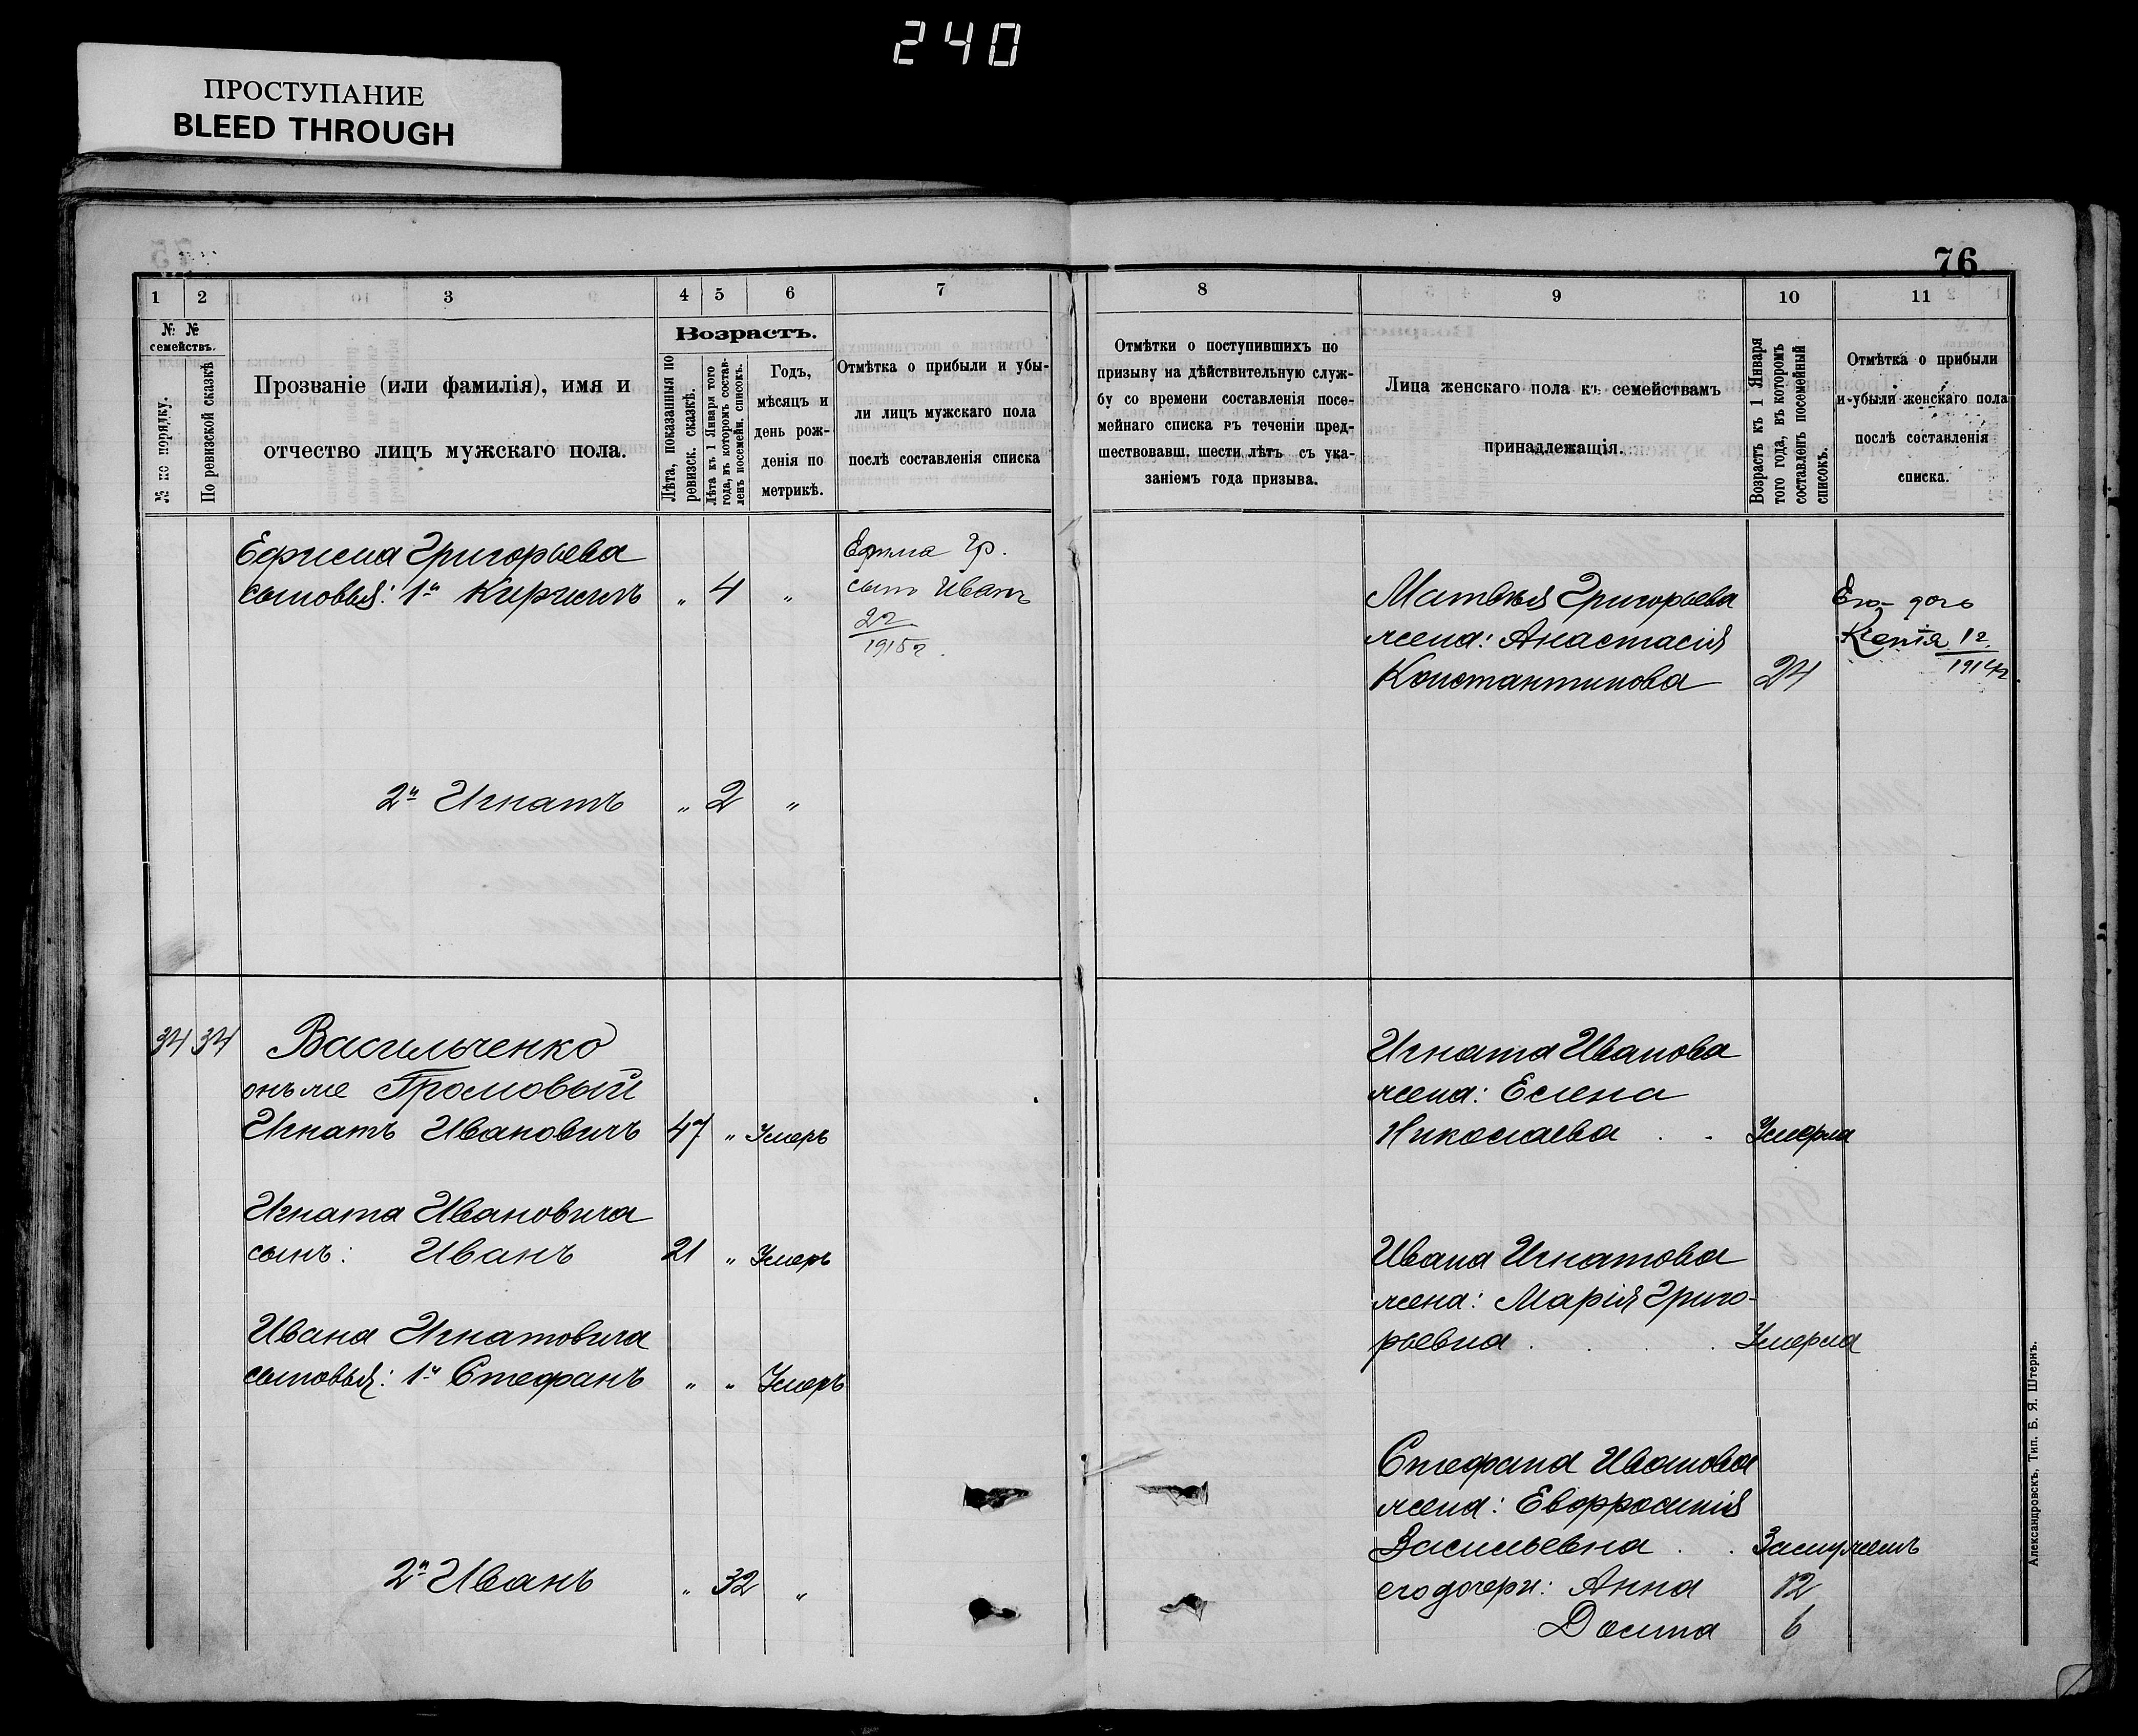 240
ПРОСТУПАНИЕ
BLEED THROUGH
76
1 2 3 4 5 6 7
№ №
семействъ.
№ по порядку.
По ревизской сказкѣ
Прозваніе (или фамилія), имя и
отчество лицъ мужскаго пола.
Возрастъ.
Лѣта, показанныя по
ревизск. сказкѣ.
Лѣта къ 1 Января того
года, въ которомъ состав-
ленъ посемейн. списокъ.
Годъ,
мѣсяцъ и
день рож-
денія по
метрикѣ.
Отмѣтка о прибыли и убы-
ли лицъ мужскаго пола
послѣ составленія списка
Ефима Григорьева
сыновья: 1й Кириллъ „ 4 „
Ефима Гр.
сынъ Иванъ
22
1915 г.
2й Игнатъ „ 2 „
34 34 Васильченко
онъ же Громовый
Игнатъ Ивановичъ 47 „ Умеръ
Игната Ивановича
сынъ: Иванъ 21 „ Умеръ
Ивана Игнатовича
сыновья: 1й Стефанъ „ „ Умеръ
2й Иванъ „ 32 „
8 9 10 11
Отмѣтки о поступившихъ по
призыву на дѣйствительную служ-
бу со времени составленія посе-
мейнаго списка въ теченіи пред-
шествовавш. шести лѣтъ съ ука-
заніемъ года призыва.
Лица женскаго пола къ семействамъ
принадлежащія.
Возрастъ къ 1 Января
того года, въ которомъ
составленъ посемейный
списокъ.
Отмѣтка о прибыли
и убыли женскаго пола
послѣ составленія
списка.
Матвѣя Григорьева
жена: Анастасія
Константинова 24
Его дочь
Ксенія 12
1914 г
Игната Иванова
жена: Елена
Николаева . . Умерла
Ивана Игнатова
жена: Марія Григо-
рьевна . . . Умерла
Стефана Иванова
жена: Евфросинія
Васильевна . . Замужемъ
его дочери: Анна 12
Домна 6
Александровскъ, Тип. Б. Я. Штернъ.